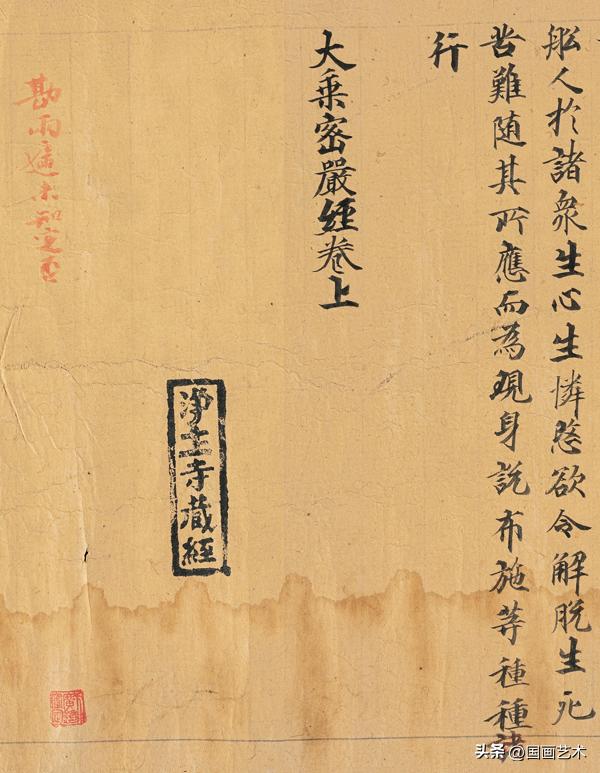 舩人於諸衆生心生憐愍欲令解脱生死
苦難随其所應而為現身説布施等種種諸
行
大乗密嚴經卷上
淨土寺藏經
勘兩遍未知定否
头条 @国画艺术